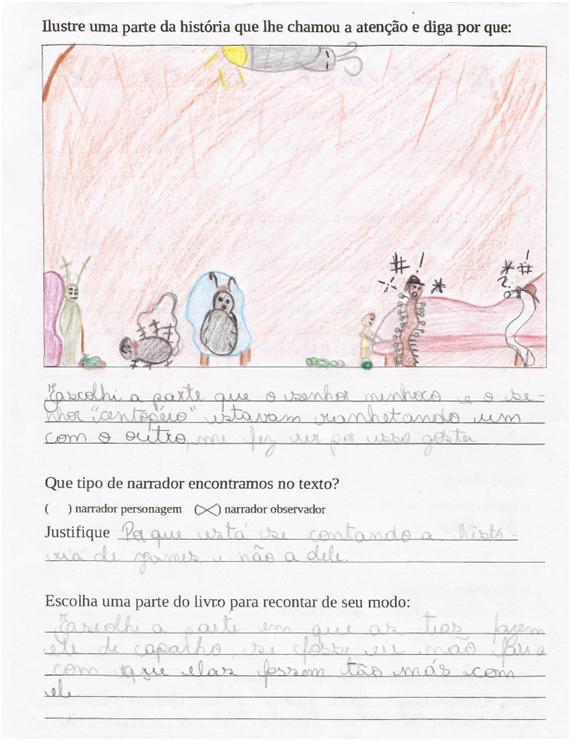 Ilustre uma parte da história que lhe chamou a atenção e diga por que:
#! *
*#
?
Escolhi a parte que o senhor minhoco e o se-
nhor "centopéio" estavam ranhetando um
com o outro, me fez rir por isso gostei
Que tipo de narrador encontramos no texto?
( ) narrador personagem (X) narrador observador
Justifique Porque está se contando a histó-
ria de James e não a dele.
Escolha uma parte do livro para recontar de seu modo:
Escolhi a parte em que as tias fazem
ele de capacho, se fosse eu não faria
com que elas fossem tão más com
ele